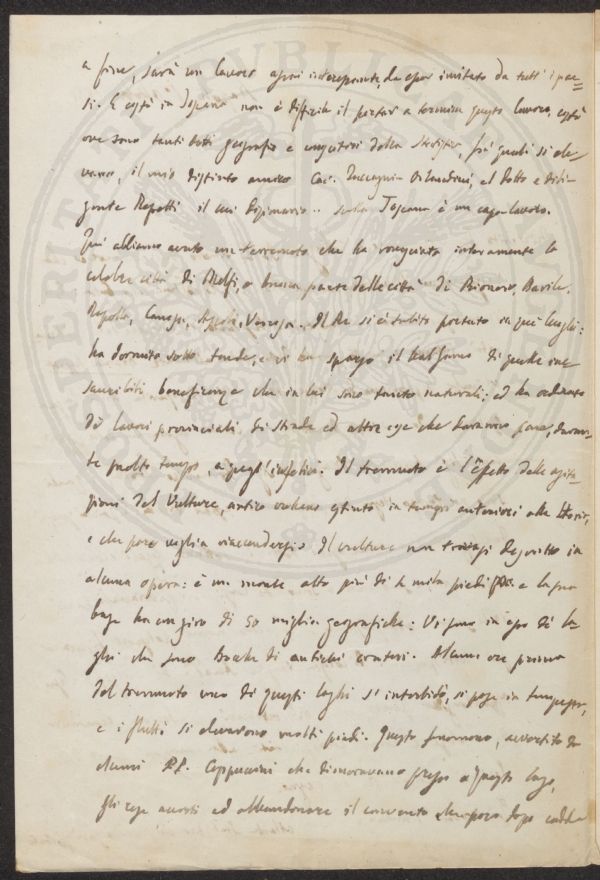 a fine, sarà un lavoro assai interessante, da esser imitato da tutt'i pae=
si. E certo in Toscana non è difficile il portar a termine questo lavoro, costà
ove sono tanti dotti geografi e cultori della Statistica, fra' quali si ele
vano, il mio distinto amico Cav. Zuccagni Orlandini, ed il dotto e dili
gente Repetti il cui Dizionario .. della Toscana è un capo-lavoro.
Qui abbiamo avuto un terremoto che ha rovesciata interamente la
celebre città di Melfi, e buona parte delle città di Rionero, Barile,
Rapolla, Canosa, Ascoli, Venosa. Il Re si è subito portato in que' luoghi:
ha dormito sotto tende, e vi ha sparso il balsamo di quelle ine
sauribili beneficenze che in lui sono tanto naturali; ed ha ordinato
de' lavori provinciali di strade ed altre cose che daranno pane, duran
te molto tempo, a quegl'infelici. Il tremuoto è l'effetto delle agita
zioni del Vulture, antico vulcano estinto in tempi anteriori alla Storia,
e che pare voglia riaccendersi. Il Vulture non trovasi descritto in
alcuna opera: è un monte alto più di 4 mila piedi e la sua
base ha un giro di 50 miglia geografiche: Vi sono in esso de' la=
ghi che sono bocche di antichi crateri. Alcune ore prima
del tremuoto uno di questi laghi s'intorbidò, si pose in tempesta,
e i flutti si elevarono molti piedi. Questo fenomeno, avvertito da
alcuni P.P. Cappuccini che dimoravano presso a questo lago,
gli rese accorti ad abbandonare il convento che poco dopo cadde